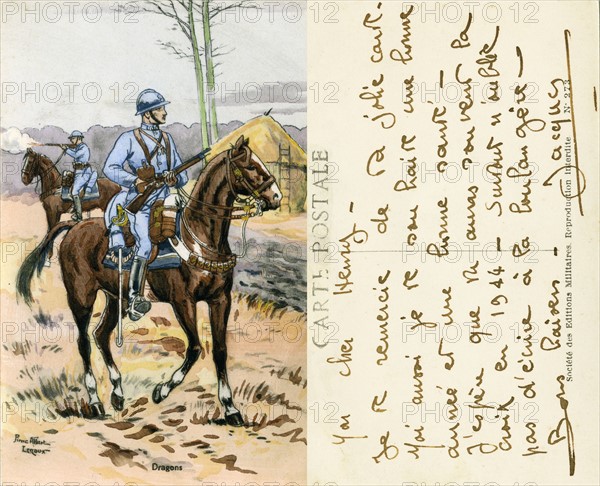 Pierre Albert
Leroux
Dragons
CARTE POSTALE
Mon cher Henry —
Je te remercie de ta jolie carte.
Moi aussi je te souhaite une bonne
année et une bonne santé —
J'espère que tu auras souvent la
croix en 1944 — Surtout n'oublie
pas d'écrire à la boulangère —
Bons baisers — Jacques
Société des Editions Militaires. Reproduction interdite N° 273